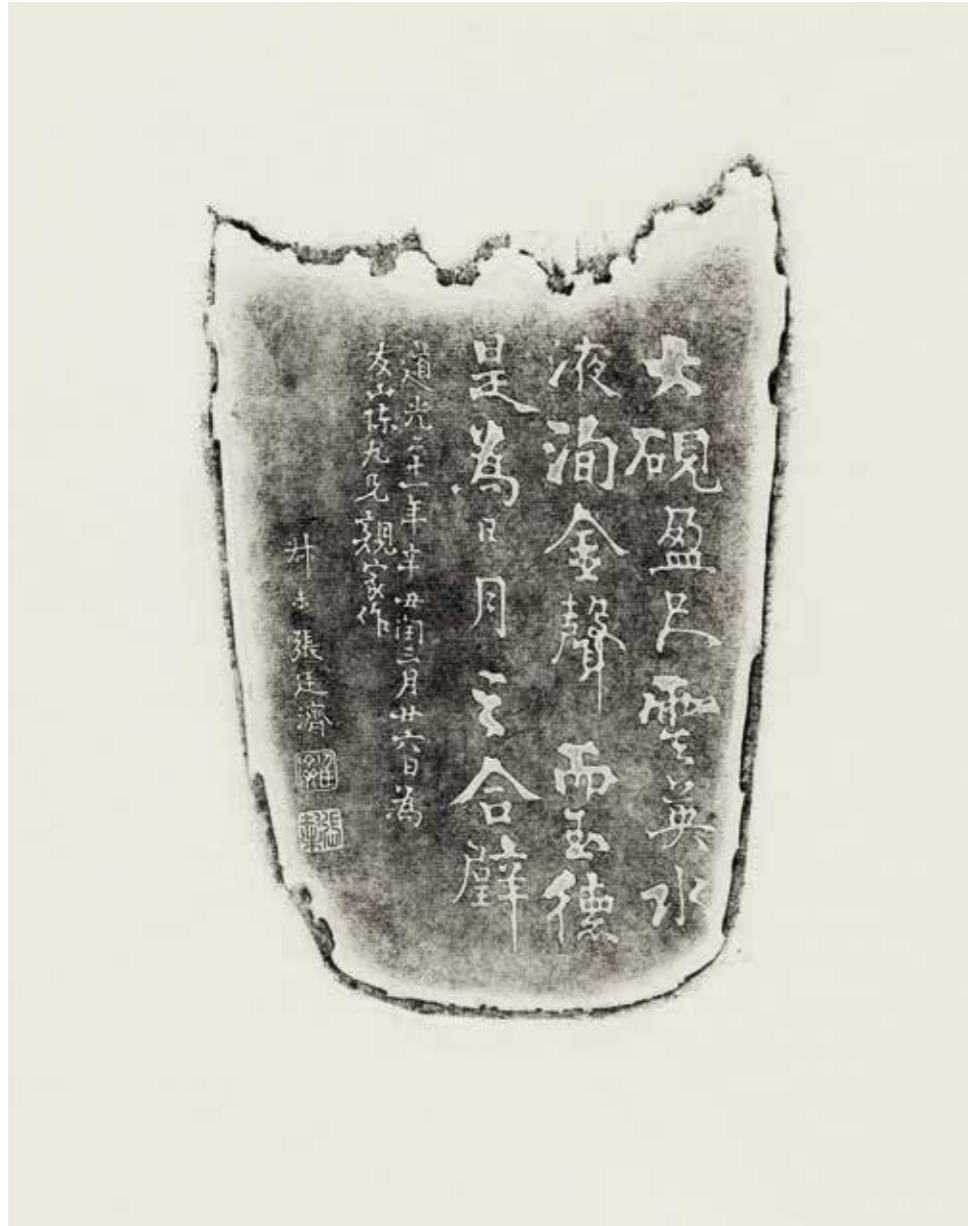 大硯盈尺雲英水
液洵金聲而玉德
是為日月之合璧
道光二十一年辛丑閏三月廿六日為
友山陳九兄親家作
叔未張廷濟